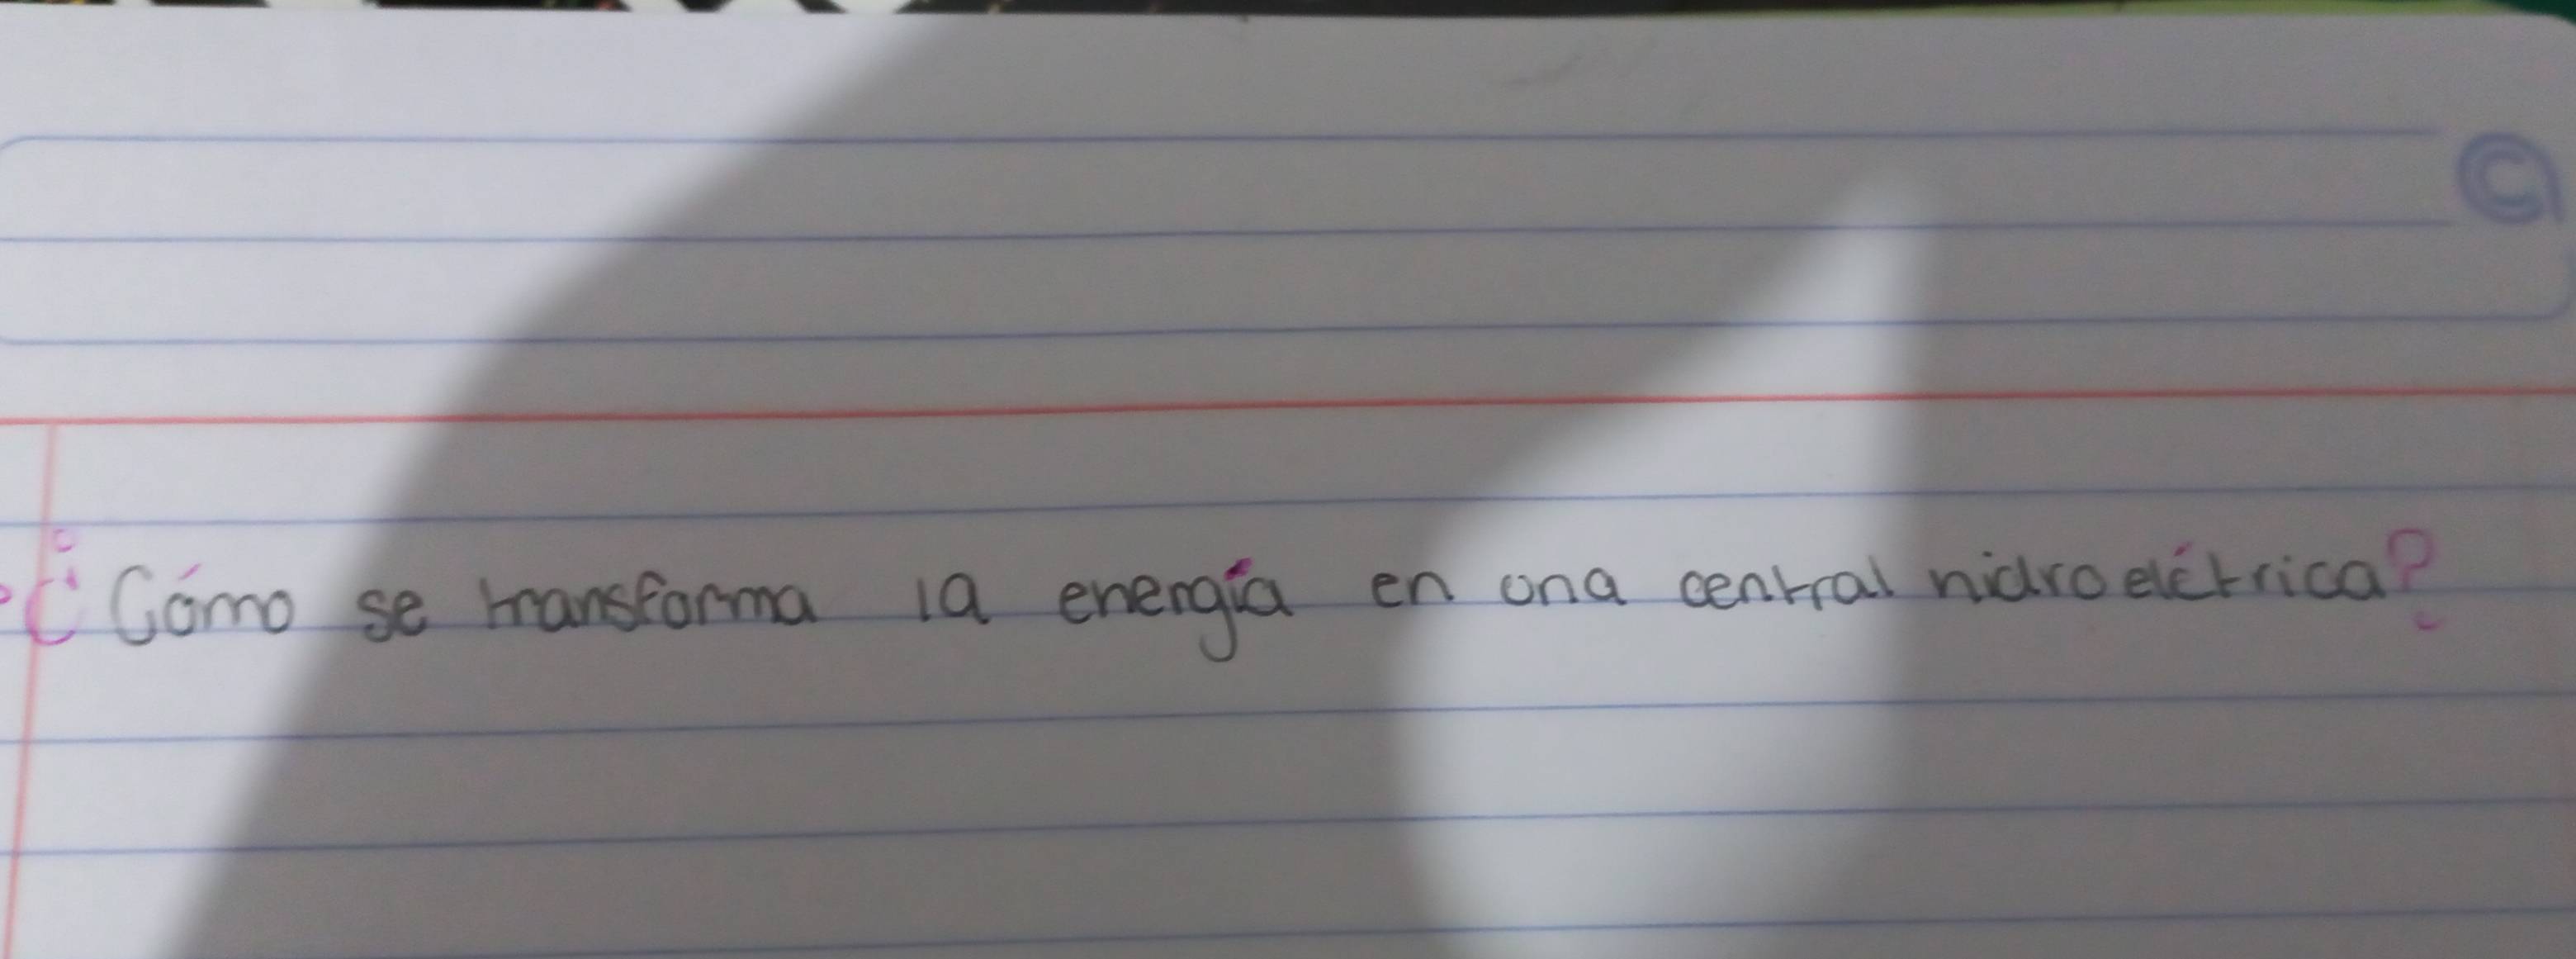 ¿Cómo se transforma la energía en una central hidroeléctrica?